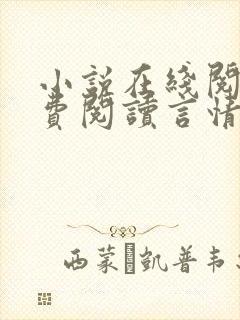 小說在綫閱
費閱讀言情
西蒙 凱普韦